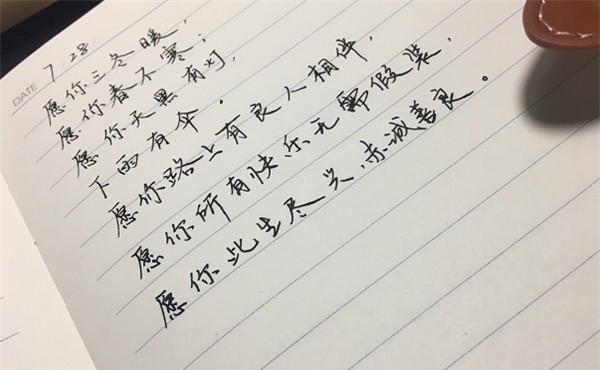 DATE 7/28/
愿你三冬暖,
愿你春不寒;
愿你天黑有灯,
下雨有伞.
愿你路上有良人相伴,
愿你所有快乐无需假装,
愿你此生尽兴,赤诚善良。